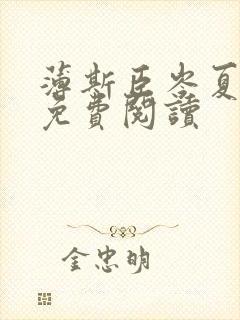 薄斯臣岑夏
免費閱讀
金忠明